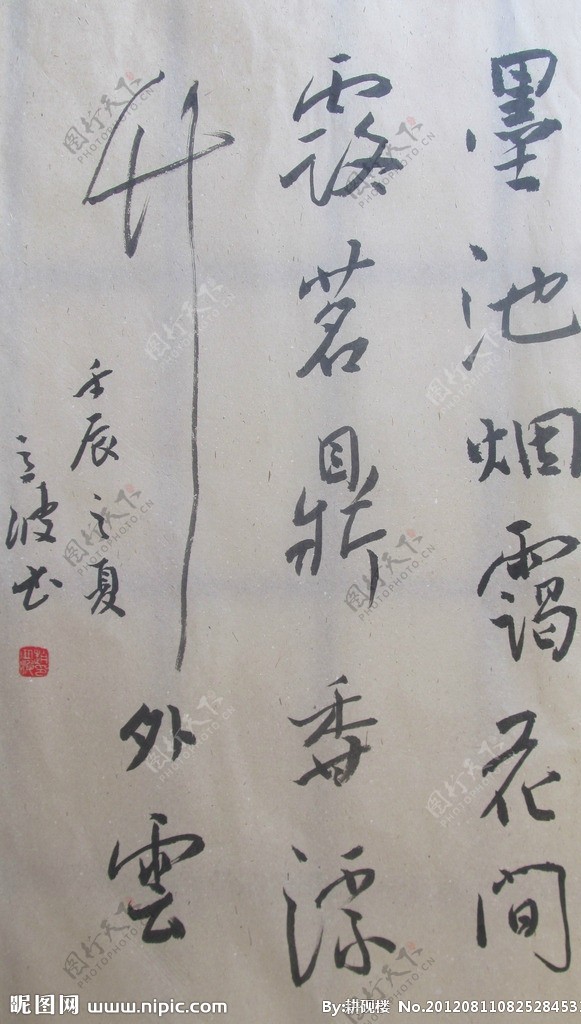 墨池烟霭花间
露茗鼎香漂
竹外雲
壬辰之夏
波书
昵图网 www.nipic.com
By:耕砚楼 No.20120811082528453
图行天下 PHOTOPHOTO.CN